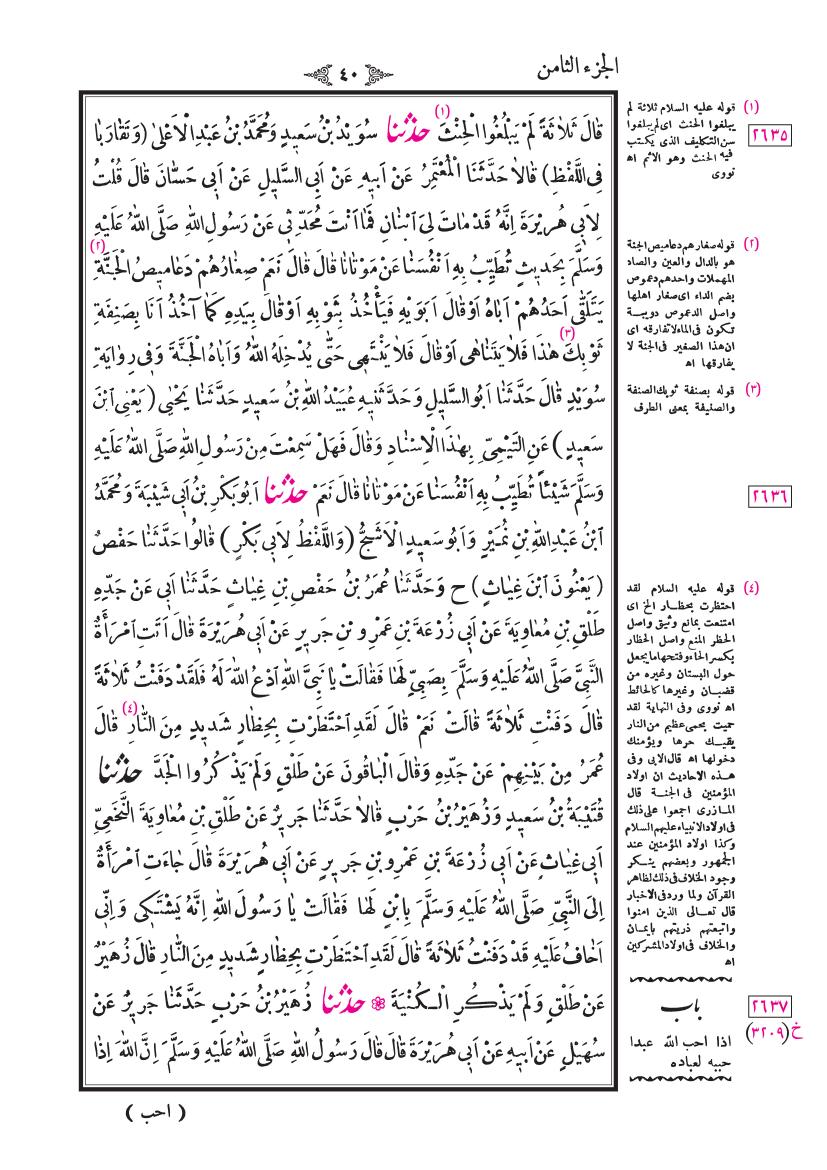 الجزء الثامن
٤٠
قَالَ ثَلَاثَةً لَمْ يَبْلُغُوا الْحِنْثَ (١) حَدَّثَنَا سُوَيْدُ بْنُ سَعِيدٍ وَمُحَمَّدُ بْنُ عَبْدِ الْأَعْلَى (وَتَقَارَبَا
فِي اللَّفْظِ) قَالَا حَدَّثَنَا الْمُعْتَمِرُ عَنْ أَبِيهِ عَنْ أَبِي السَّلِيلِ عَنْ أَبِي حَسَّانَ قَالَ قُلْتُ
لِأَبِي هُرَيْرَةَ إِنَّهُ قَدْ مَاتَ لِيَ ابْنَانِ فَمَا أَنْتَ مُحَدِّثِي عَنْ رَسُولِ اللهِ صَلَّى اللهُ عَلَيْهِ
وَسَلَّمَ بِحَدِيثٍ تُطَيِّبُ بِهِ أَنْفُسَنَا عَنْ مَوْتَانَا قَالَ قَالَ نَعَمْ صِغَارُهُمْ دَعَامِيصُ الْجَنَّةِ (٢)
يَتَلَقَّى أَحَدُهُمْ أَبَاهُ أَوْ قَالَ أَبَوَيْهِ فَيَأْخُذُ بِثَوْبِهِ أَوْ قَالَ بِيَدِهِ كَمَا آخُذُ أَنَا بِصَنِفَةِ
ثَوْبِكَ (٣) هٰذَا فَلَا يَتَنَاهَى أَوْ قَالَ فَلَا يَنْتَهِي حَتَّى يُدْخِلَهُ اللهُ وَأَبَاهُ الْجَنَّةَ وَفِي رِوَايَةِ
سُوَيْدٍ قَالَ حَدَّثَنَا أَبُو السَّلِيلِ وَحَدَّثَنِيهِ عُبَيْدُ اللهِ بْنُ سَعِيدٍ حَدَّثَنَا يَحْيَى (يَعْنِي ابْنَ
سَعِيدٍ) عَنِ التَّيْمِيِّ بِهٰذَا الْإِسْنَادِ وَقَالَ فَهَلْ سَمِعْتَ مِنْ رَسُولِ اللهِ صَلَّى اللهُ عَلَيْهِ
وَسَلَّمَ شَيْئًا تُطَيِّبُ بِهِ أَنْفُسَنَا عَنْ مَوْتَانَا قَالَ نَعَمْ حَدَّثَنَا أَبُو بَكْرِ بْنُ أَبِي شَيْبَةَ وَمُحَمَّدُ
ابْنُ عَبْدِ اللهِ بْنِ نُمَيْرٍ وَأَبُو سَعِيدٍ الْأَشَجُّ (وَاللَّفْظُ لِأَبِي بَكْرٍ) قَالُوا حَدَّثَنَا حَفْصٌ
(يَعْنُونَ ابْنَ غِيَاثٍ) ح وَحَدَّثَنَا عُمَرُ بْنُ حَفْصِ بْنِ غِيَاثٍ حَدَّثَنَا أَبِي عَنْ جَدِّهِ
طَلْقِ بْنِ مُعَاوِيَةَ عَنْ أَبِي زُرْعَةَ بْنِ عَمْرِو بْنِ جَرِيرٍ عَنْ أَبِي هُرَيْرَةَ قَالَ أَتَتِ امْرَأَةٌ
النَّبِيَّ صَلَّى اللهُ عَلَيْهِ وَسَلَّمَ بِصَبِيٍّ لَهَا فَقَالَتْ يَا نَبِيَّ اللهِ ادْعُ اللهَ لَهُ فَلَقَدْ دَفَنْتُ ثَلَاثَةً
قَالَ دَفَنْتِ ثَلَاثَةً قَالَتْ نَعَمْ قَالَ لَقَدِ احْتَظَرْتِ بِحِظَارٍ شَدِيدٍ مِنَ النَّارِ (٤) قَالَ
عُمَرُ مِنْ بَيْنِهِمْ عَنْ جَدِّهِ وَقَالَ الْبَاقُونَ عَنْ طَلْقٍ وَلَمْ يَذْكُرُوا الْجَدَّ حَدَّثَنَا
قُتَيْبَةُ بْنُ سَعِيدٍ وَزُهَيْرُ بْنُ حَرْبٍ قَالَا حَدَّثَنَا جَرِيرٌ عَنْ طَلْقِ بْنِ مُعَاوِيَةَ النَّخَعِيِّ
أَبِي غِيَاثٍ عَنْ أَبِي زُرْعَةَ بْنِ عَمْرِو بْنِ جَرِيرٍ عَنْ أَبِي هُرَيْرَةَ قَالَ جَاءَتِ امْرَأَةٌ
إِلَى النَّبِيِّ صَلَّى اللهُ عَلَيْهِ وَسَلَّمَ بِابْنٍ لَهَا فَقَالَتْ يَا رَسُولَ اللهِ إِنَّهُ يَشْتَكِي وَإِنِّي
أَخَافُ عَلَيْهِ قَدْ دَفَنْتُ ثَلَاثَةً قَالَ لَقَدِ احْتَظَرْتِ بِحِظَارٍ شَدِيدٍ مِنَ النَّارِ قَالَ زُهَيْرٌ
عَنْ طَلْقٍ وَلَمْ يَذْكُرِ الْكُنْيَةَ ❁ حَدَّثَنَا زُهَيْرُ بْنُ حَرْبٍ حَدَّثَنَا جَرِيرٌ عَنْ
سُهَيْلٍ عَنْ أَبِيهِ عَنْ أَبِي هُرَيْرَةَ قَالَ قَالَ رَسُولُ اللهِ صَلَّى اللهُ عَلَيْهِ وَسَلَّمَ إِنَّ اللهَ إِذَا
( احب )
(١) قوله عليه السلام ثلاثة لم
يبلغوا الحنث اى لم يبلغوا
سن التكليف الذى يكتب
فيه الحنث وهو الاثم اه
نووى
٢٦٣٥
(٢) قوله صغارهم دعاميص الجنة
هو بالدال والعين والصاد
المهملات واحدهم دعموص
بضم الدال اى صغار اهلها
واصل الدعموص دويبة
تكون فى الماء لا تفارقه اى
ان هذا الصغير فى الجنة لا
يفارقها اه
(٣) قوله بصنفة ثوبك الصنفة
والصنيفة بمعنى الطرف
٢٦٣٦
(٤) قوله عليه السلام لقد
احتظرت بحظار الخ اى
امتنعت بمانع وثيق واصل
الحظر المنع واصل الحظار
بكسر الحاء وفتحها ما يجعل
حول البستان وغيره من
قضبان وغيرها كالحائط
اه نووى وفى النهاية لقد
حميت بحمى عظيم من النار
يقيك حرها ويؤمنك
دخولها اه قال الابى وفى
هذه الاحاديث ان اولاد
المؤمنين فى الجنة قال
المازرى اجمعوا على ذلك
فى اولاد الانبياء عليهم السلام
وكذا اولاد المؤمنين عند
الجمهور وبعضهم ينكر
وجود الخلاف فى ذلك لظاهر
القرآن ولما ورد فى الاخبار
قال تعالى الذين امنوا
واتبعتهم ذريتهم بايمان
والخلاف فى اولاد المشركين
اه
باب
٢٦٣٧
خ (٣٢٠٩)
اذا احب الله عبدا
حببه لعباده